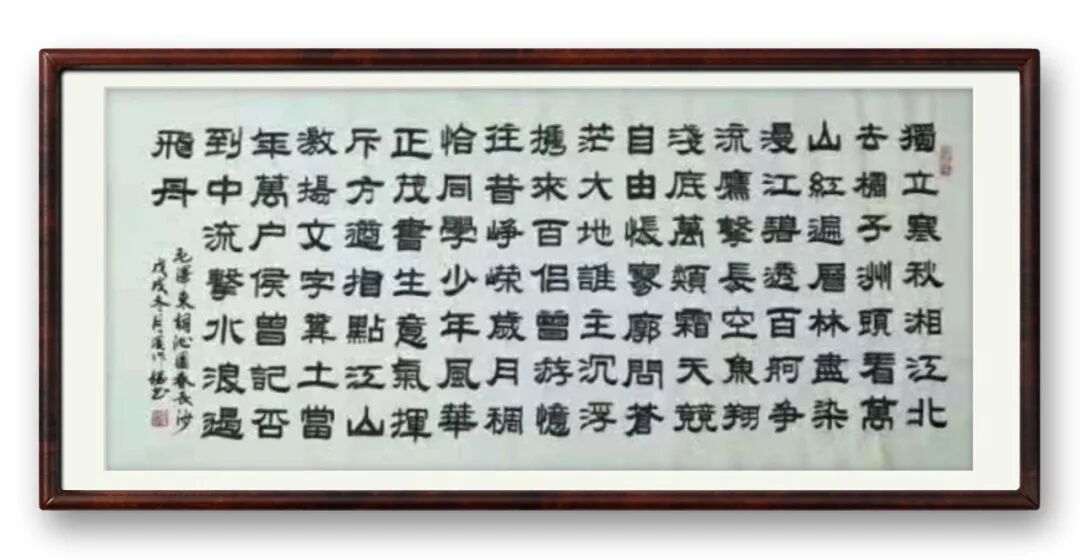 獨立寒秋湘江北
去橘子洲頭看萬
山紅遍層林盡染
漫江碧透百舸爭
流鷹擊長空魚翔
淺底萬類霜天競
自由悵寥廓問蒼
茫大地誰主沉浮
攜來百侶曾游憶
往昔崢嶸歲月稠
恰同學少年風華
正茂書生意氣揮
斥方遒指點江山
激揚文字糞土當
年萬户侯曾記否
到中流擊水浪遏
飛舟
毛澤東詞沁園春長沙
戊戌冬月